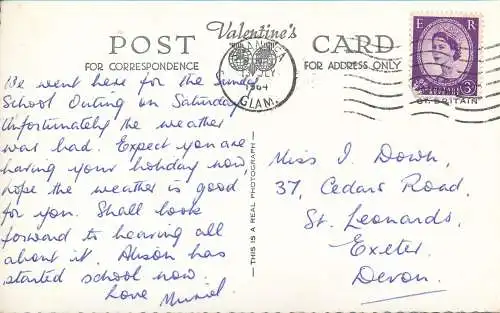 Valentine's
POST CARD
FOR CORRESPONDENCE
FOR ADDRESS ONLY
SWANSEA
JLY
1964
GLAM.
E R
3D
GT. BRITAIN
We went here for the Sunday
School Outing on Saturday
Unfortunately the weather
was bad. Expect you are
having your holiday now,
hope the weather is good
for you. Shall look
forward to hearing all
about it. Alison has
started school now.
Love Muriel
THIS IS A REAL PHOTOGRAPH
Miss I. Down,
37, Cedars Road,
St. Leonards,
Exeter,
Devon.